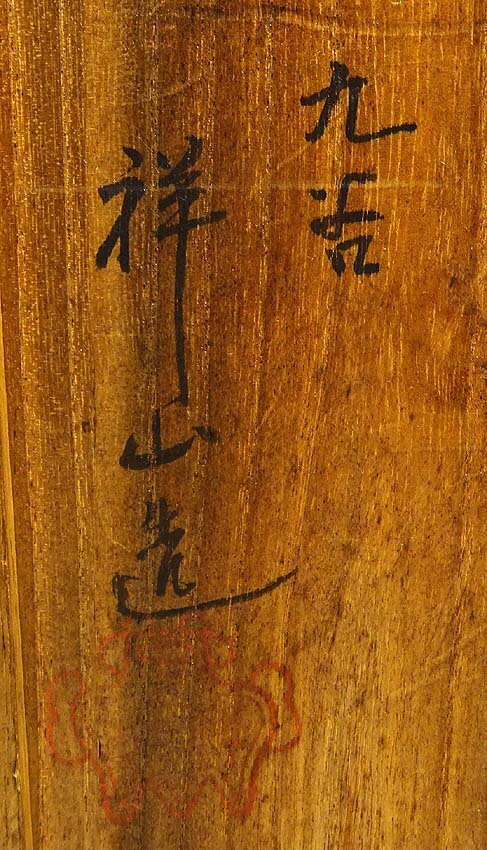 九谷
祥山造